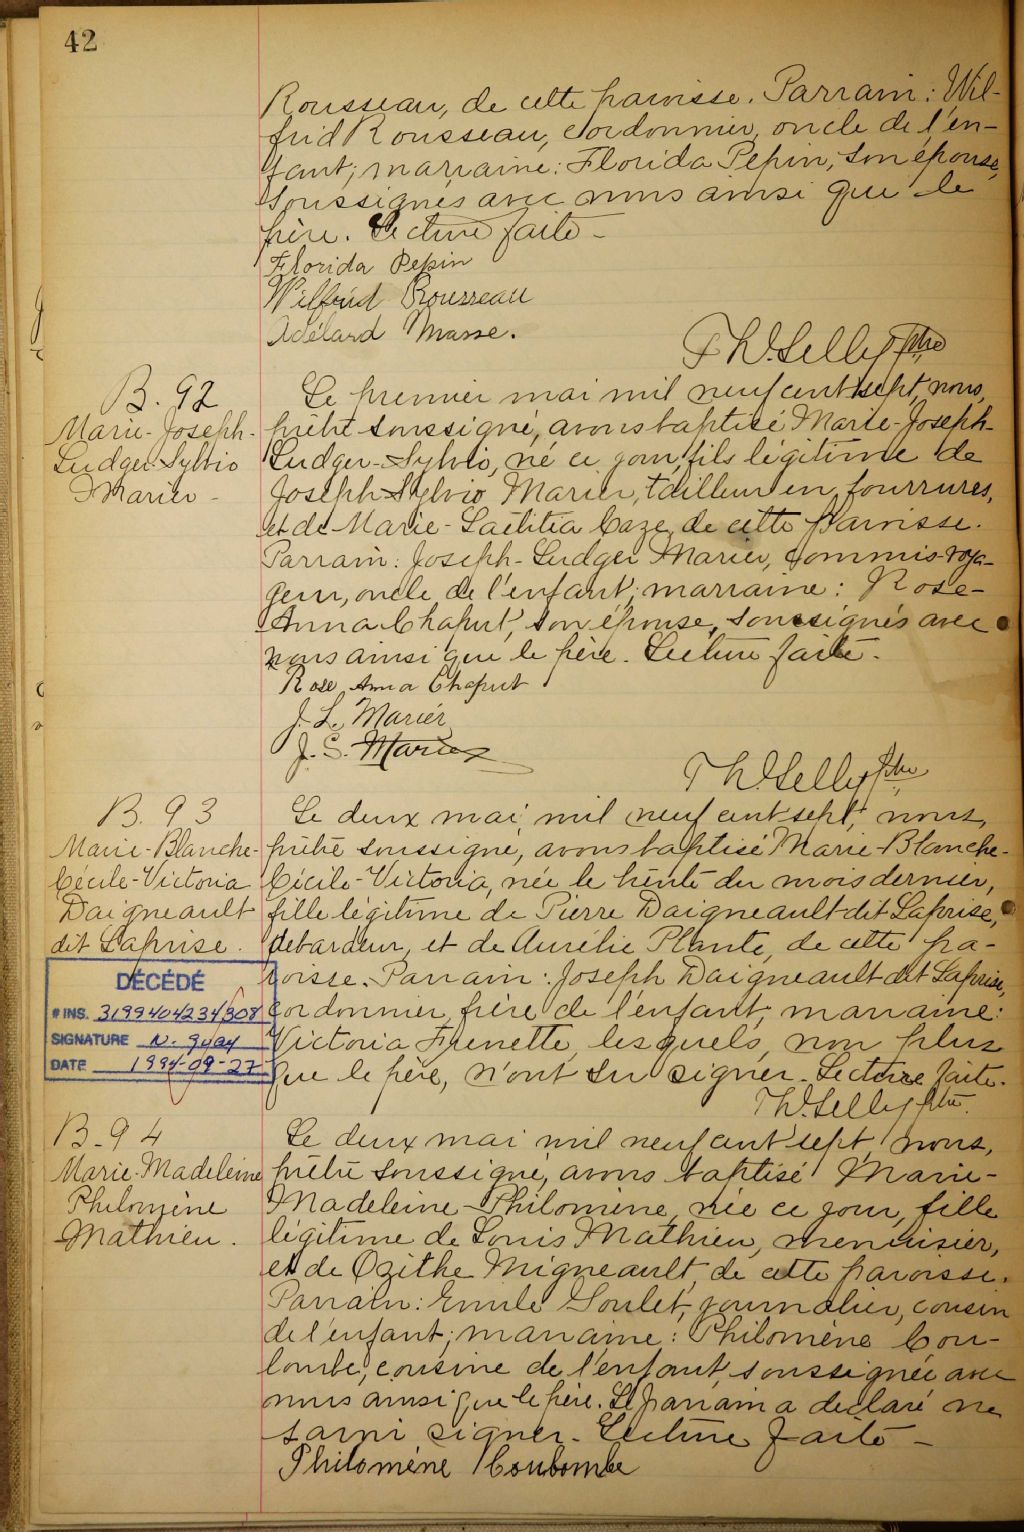 42
Rousseau, de cette paroisse. Parrain: Wil-
frid Rousseau, cordonnier, oncle de l'en-
fant; marraine: Florida Pepin, son épouse,
soussignés avec nous ainsi que le
père. Lecture faite -
Florida Pepin
Wilfrid Rousseau
Adélard Masse.
Th. W. Selly ptre
B. 92
Marie-Joseph-
Ludger-Sylvio
Marier -
Le premier mai mil neuf cent sept, nous,
prêtre soussigné, avons baptisé Marie-Joseph-
Ludger-Sylvio, né ce jour, fils légitime de
Joseph-Sylvio Marier, tailleur en fourrures,
et de Marie-Laëtitia Caze, de cette paroisse.
Parrain: Joseph-Ludger Marier, commis-voya-
geur, oncle de l'enfant; marraine: Rose-
Anna Chaput, son épouse, soussignés avec
nous ainsi que le père. Lecture faite.
Rose Anna Chaput
J. L. Marier
J. S. Marier
Th. W. Selly ptre
B. 93
Marie-Blanche-
Cécile-Victoria
Daigneault
dit Laprise.
Le deux mai, mil neuf cent sept, nous,
prêtre soussigné, avons baptisé Marie-Blanche-
Cécile-Victoria, née le trente du mois dernier,
fille légitime de Pierre Daigneault dit Laprise,
débardeur, et de Aurélie Plante, de cette pa-
roisse. Parrain: Joseph Daigneault dit Laprise,
cordonnier, frère de l'enfant; marraine:
Victoria Frenette, lesquels, non plus
que le père, n'ont su signer. Lecture faite.
Th. W. Selly ptre.
DÉCÉDÉ
# INS. 3199404234308
SIGNATURE N. Guay
DATE 1994-09-27
B. 94
Marie-Madeleine
Philomène
Mathieu.
Le deux mai mil neuf cent sept, nous,
prêtre soussigné, avons baptisé Marie-
Madeleine-Philomène, née ce jour, fille
légitime de Louis Mathieu, menuisier,
et de Ozithe Migneault, de cette paroisse.
Parrain: Emile Goulet, journalier, cousin
de l'enfant; marraine: Philomène Cou-
lombe, cousine de l'enfant, soussignée avec
nous ainsi que le père. Le parrain a déclaré ne
savoir signer. Lecture faite -
Philomène Coulombe